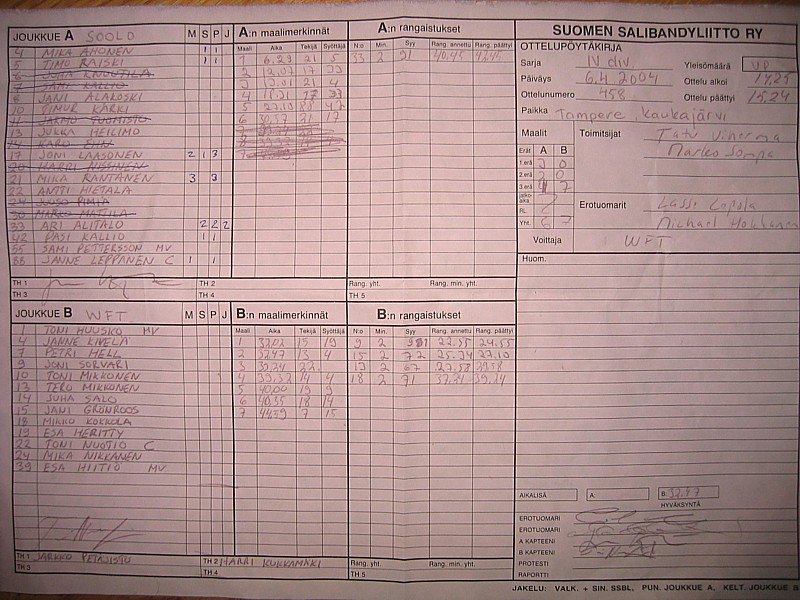 SUOMEN SALIBANDYLIITTO RY
OTTELUPÖYTÄKIRJA
Sarja IV div. Yleisömäärä VP
Päiväys 6.4 2004 Ottelu alkoi
Ottelunumero 458 Ottelu päättyi 15,24
Paikka Tampere, Kaukajärvi
Maalit Toimitsijat
Erät A B
1.erä 0
2.erä 0
3.erä 7
Erotuomarit Lassi
RL
Yht. 6 7
Voittaja WFT
Huom.
JOUKKUE A SOOLO M S P J
4 MIKA AHONEN 1 1
5 TIMO RAISKI 1 1
6 JUHA KNUUTILA
7 SAMI KALLIO
8 JANI ALAKOSKI
10 TIMUR KÄRKI
11 JARMO TUOMISTO
13 JUKKA HEILIMO
17 JONI LAASONEN 2 1 3
20 HARRI NISSINEN
21 MIKA RANTANEN 3 3
22 ANTTI HIETALA
30 MARKO MATTILA
33 ARI ALITALO 2 2 2
42 PASI KALLIO 1 1
SAMI PETTERSSON MV
88 JANNE LEPPÄNEN C 1 1
TH 1 TH 2
TH 3 TH 4
A:n maalimerkinnät
Maali Aika Tekijä Syöttäjä
1 6.29 21 5
2 17 33
3 21 4
4 17 33
5 27.10 88 42
6 30.57 21 17
A:n rangaistukset
N:o Min. Syy Rang. annettu Rang. päättyi
33 2 91 40,45 42,45
Rang. yht. Rang. min. yht.
TH 5
JOUKKUE B WFT M S P J
1 TONI HUUSKO MV
4 JANNE KIVELÄ
7 PETRI HELL
9 JONI SORVARI
10 TONI MIKKONEN
13 TERO MIKKONEN
14 JUHA SALO
15 JANI GRÖNROOS
18 MIKKO KOKKOLA
19 ESA HERITTY
22 TONI NUOTIO C
24 MIKA NIKKANEN
39 ESA HIITIÖ MV
TH 1 JARKKO TH 2 HARRI KUKKAMÄKI
TH 3 TH 4
B:n maalimerkinnät
Maali Aika Tekijä Syöttäjä
1 32.02 15 19
2 32,47 13 4
3 22
4 14 4
5 40,00 19 9
6 40,55 18 14
7 44,59 7 15
B:n rangaistukset
N:o Min. Syy Rang. annettu Rang. päättyi
9 2 22.55 24.55
15 2 72 27.10
2 67 27.58 29.58
18 2 71 37.24 39.24
Rang. yht. Rang. min. yht.
TH 5
AIKALISÄ A: B: 32.47
HYVÄKSYNTÄ
EROTUOMARI
EROTUOMARI
A KAPTEENI
B KAPTEENI
PROTESTI
RAPORTTI
JAKELU: VALK. + SIN. SSBL, PUN. JOUKKUE A, KELT. JOUKKUE B